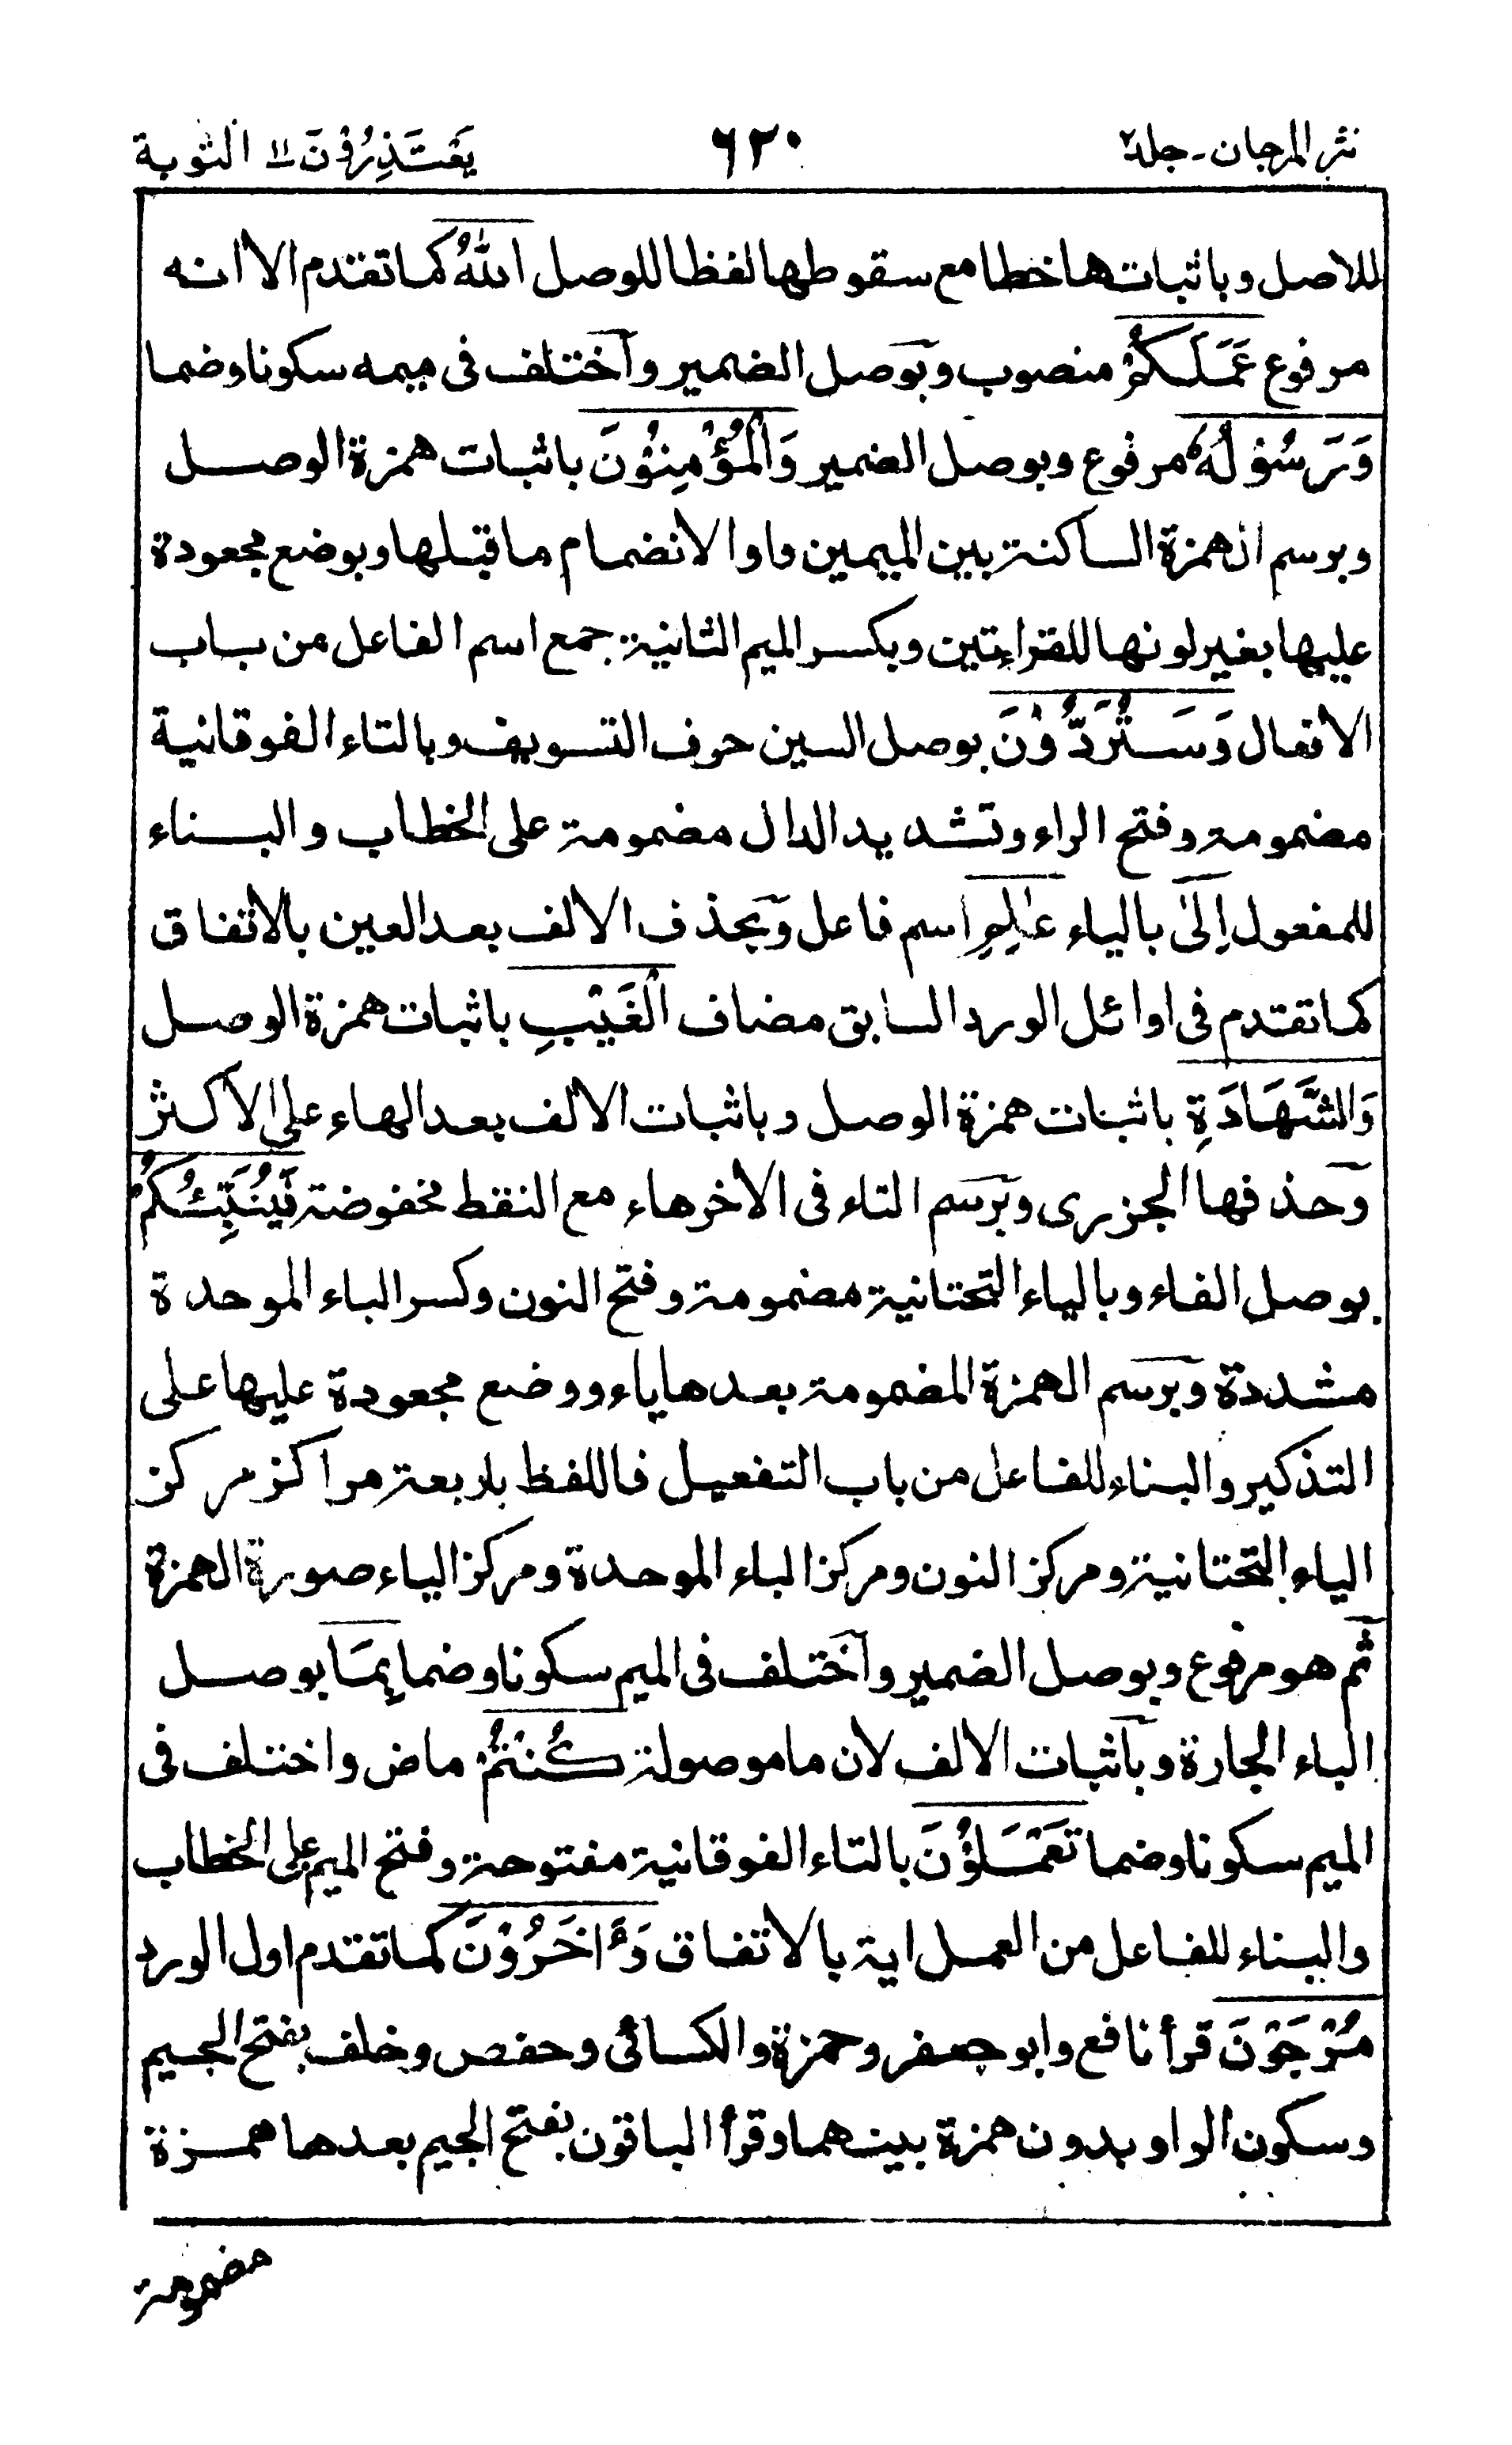 نثر المرجان - جلد ٢
٦٢٠
يَعْتَذِرُوْنَ ١١ التوبة
للاصل وباثباتها خطا مع سقوطها لفظا للوصل اللهُ كما تقدم الا انه
مرفوع عَمَلَكُمْ منصوب وبوصل الضمير واختلف فى ميمه سكونا وضما
وَرَسُوْلُهٗ مرفوع وبوصل الضمير وَالْمُؤْمِنُوْنَ باثبات همزة الوصل
وبرسم الهمزة الساكنة بين الميمين واوا لانضمام ما قبلها وبوضع مجعودة
عليها بغير لونها للقراءتين وبكسر الميم الثانية جمع اسم الفاعل من باب
الافعال وَسَتُرَدُّوْنَ بوصل السين حرف التسويف وبالتاء الفوقانية
مضمومة وفتح الراء وتشديد الدال مضمومة على الخطاب والبناء
للمفعول اِلٰى بالياء عٰلِمِ اسم فاعل وبحذف الالف بعد العين بالاتفاق
كما تقدم فى اوائل الورد السابق مضاف الْغَيْبِ باثبات همزة الوصل
وَالشَّهَادَةِ باثبات همزة الوصل وباثبات الالف بعد الهاء على الاكثر
وحذفها الجزرى وبرسم التاء فى الاخر هاء مع النقط مخفوضة فَيُنَبِّئُكُمْ
بوصل الفاء وبالياء التحتانية مضمومة وفتح النون وكسر الباء الموحدة
مشددة وبرسم الهمزة المضمومة بعدها ياء ووضع مجعودة عليها على
التذكير والبناء للفاعل من باب التفعيل فاللفظ باربعة مراكز مركز
الياء التحتانية ومركز النون ومركز الباء الموحدة ومركز الياء صورة الهمزة
ثم هو مرفوع وبوصل الضمير واختلف فى الميم سكونا وضما بِمَا بوصل
الباء الجارة وباثبات الالف لان ما موصولة كُنْتُمْ ماض واختلف فى
الميم سكونا وضما تَعْمَلُوْنَ بالتاء الفوقانية مفتوحة وفتح الميم على الخطاب
والبناء للفاعل من العمل اية بالاتفاق وَءَاخَرُوْنَ كما تقدم اول الورد
مُرْجَوْنَ قرأ نافع وابو جعفر وحمزة والكسائى وحفص وخلف بفتح الجيم
وسكون الواو بدون همزة بينهما وقرأ الباقون بفتح الجيم بعدها همزة
مضمومة